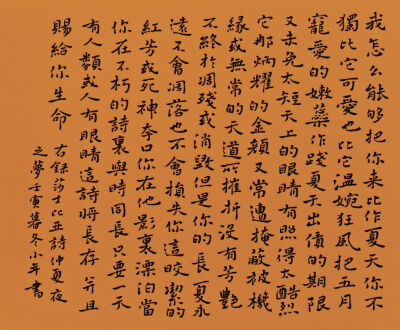 我怎么能够把你来比作夏天你不
独比它可爱也比它温婉狂风把五月
宠爱的嫩蕊作践夏天出赁的期限
又未免太短天上的眼睛有照得太酷烈
它那炳耀的金颜又常遭掩蔽被机
缘或无常的天道所摧折没有芳艳
不终于凋残或消毁但是你的长夏永
远不会凋落也不会损失你这皎洁的
红芳或死神夸口你在他影裏漂泊当
你在不朽的诗裏与时同长只要一天
有人类或人有眼睛这诗将长存并且
赐给你生命 右录莎士比亚诗仲夏夜
之梦壬寅暮冬小年书